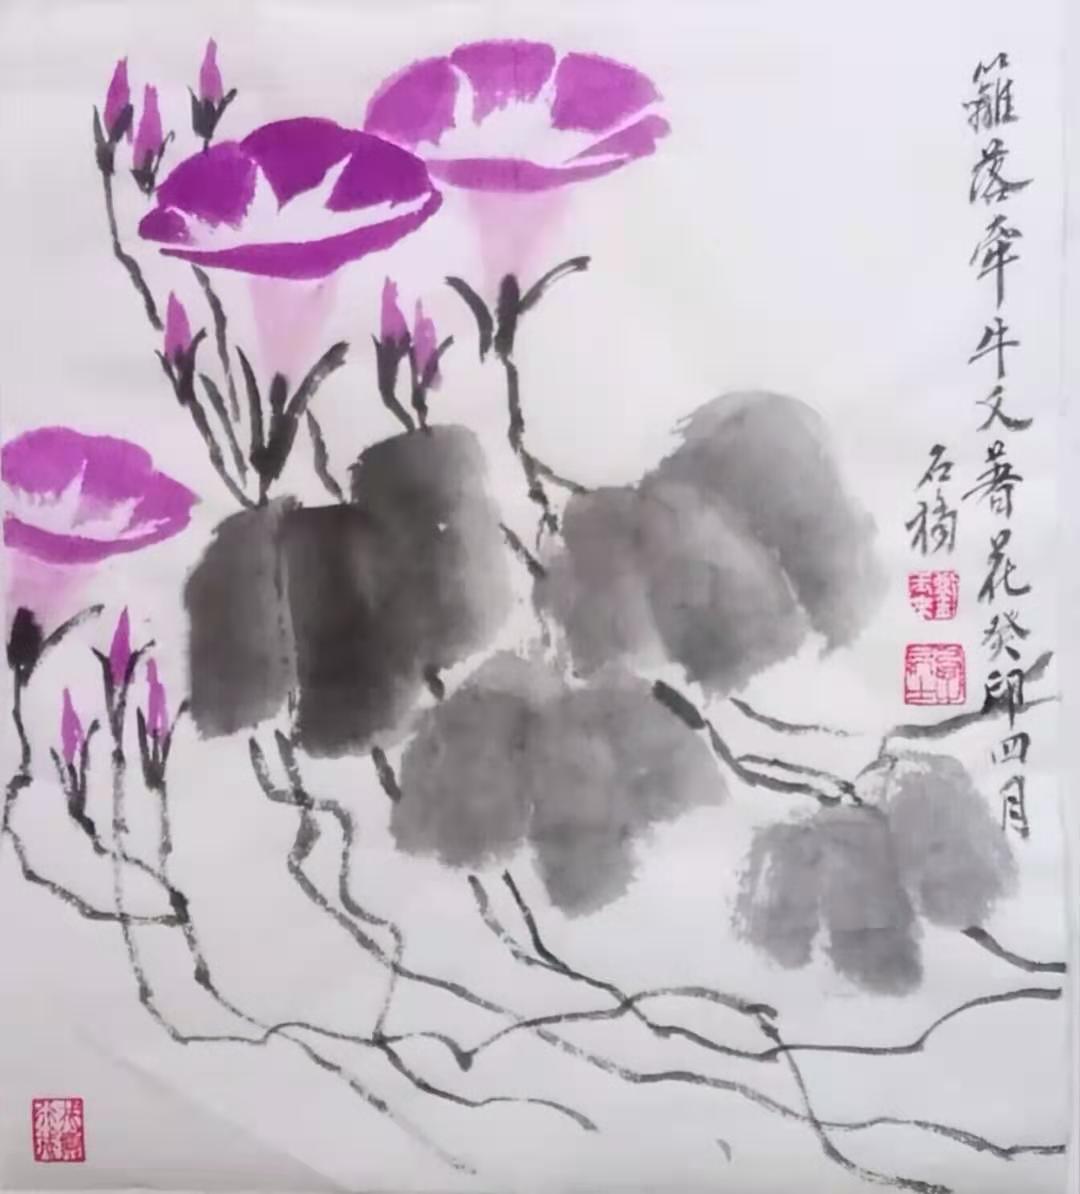 籬落牽牛又著花癸卯四月
石